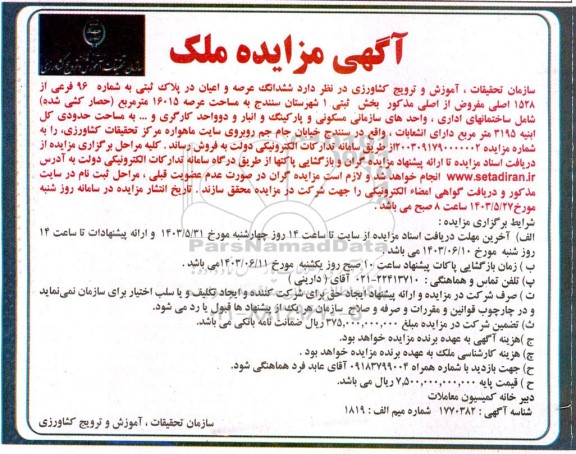 آگهی مزایده ملک
سازمان تحقیقات ، آموزش و ترویج کشاورزی در نظر دارد ششدانگ عرصه و اعیان در پلاک ثبتی به شماره ۹۶ فرعی از
۱۵۲۸ اصلی مفروض از اصلی مذکور بخش ثبتی ۱ شهرستان سنندج به مساحت عرصه ۱۶۰۱۵ مترمربع (حصار کشی شده)
شامل ساختمانهای اداری ، واحد های سازمانی مسکونی و پارکینگ و انبار و دوواحد کارگری و ... به مساحت حدودی کل
ابنیه ۳۱۹۵ متر مربع دارای انشعابات ، واقع در سنندج خیابان جام جم روبروی سایت ماهواره مرکز تحقیقات کشاورزی، را به
شماره مزایده ۲۰۰۳۰۹۱۷۹۰۰۰۰۰۲ از طریق سامانه تدارکات الکترونیکی دولت به فروش رساند . کلیه مراحل برگزاری مزایده از
دریافت اسناد مزایده تا ارائه پیشنهاد مزایده گران و بازگشایی پاکتها از طریق درگاه سامانه تدارکات الکترونیکی دولت به آدرس
www.setadiran.ir انجام خواهد شد و لازم است مزایده گران در صورت عدم عضویت قبلی ، مراحل ثبت نام در سایت
مذکور و دریافت گواهی امضاء الکترونیکی را جهت شرکت در مزایده محقق سازند . تاریخ انتشار مزایده در سامانه روز شنبه
مورخ ۱۴۰۳/۵/۲۷ ساعت ۸ صبح می باشد .
شرایط برگزاری مزایده :
الف) آخرین مهلت دریافت اسناد مزایده از سایت تا ساعت ۱۴ روز چهارشنبه مورخ ۱۴۰۳/۵/۳۱ و ارائه پیشنهادات تا ساعت ۱۴
روز شنبه مورخ ۱۴۰۳/۰۶/۱۰ می باشد .
ب ) زمان بازگشایی پاکات پیشنهاد ساعت ۱۰ صبح روز یکشنبه مورخ ۱۴۰۳/۰۶/۱۱ می باشد .
پ) تلفن تماس و هماهنگی : ۲۲۴۱۳۷۱۰-۰۲۱ آقای ( دارینی )
ت ) صرف شرکت در مزایده و ارائه پیشنهاد ایجاد حق برای شرکت کننده و ایجاد تکلیف و یا سلب اختیار برای سازمان نمی‌نماید
و در چارچوب قوانین و مقررات و صرفه و صلاح سازمان هر یک از پیشنهاد ها قبول یا رد می شود.
ث) تضمین شرکت در مزایده مبلغ ۳۷۵,۰۰۰,۰۰۰,۰۰۰ ریال ضمانت نامه بانکی می باشد.
ج) هزینه آگهی به عهده برنده مزایده خواهد بود.
چ) هزینه کارشناسی ملک به عهده برنده مزایده خواهد بود .
ح) جهت بازدید با شماره همراه ۰۹۱۸۳۷۹۹۰۰۴ آقای عابد فرد هماهنگی شود.
ح ) قیمت پایه ۷,۵۰۰,۰۰۰,۰۰۰,۰۰۰ ریال می باشد.
دبیر خانه کمیسیون معاملات
شناسه آگهی : ۱۷۷۰۳۸۲ شماره میم الف : ۱۸۱۹
سازمان تحقیقات ، آموزش و ترویج کشاورزی
ParsNamadData